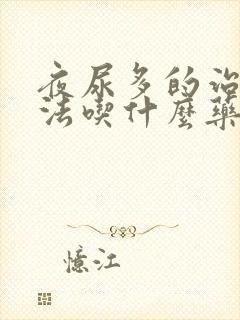 夜尿多的治
法喫什麼藥
憶江